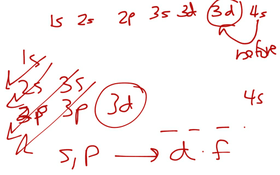 1s 2s 2p 3s 3d 3d 4s
before
1s
2s 3s
2p 3p 3d
4s
s, p → d . f